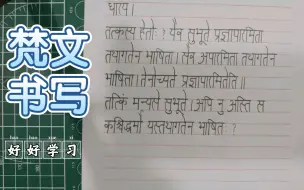 梵文
书写
好好学习
धारय।
तत्कस्य हेतोः? यैव सुभूते प्रज्ञापारमिता
तथागतेन भाषिता। सैव अपारमिता तथागतेन
भाषिता। तेनोच्यते प्रज्ञापारमितेति॥
तत्किं मन्यसे सुभूते।अपि नु अस्ति स
कश्चिद्धर्मो यस्तथागतेन भाषितः?